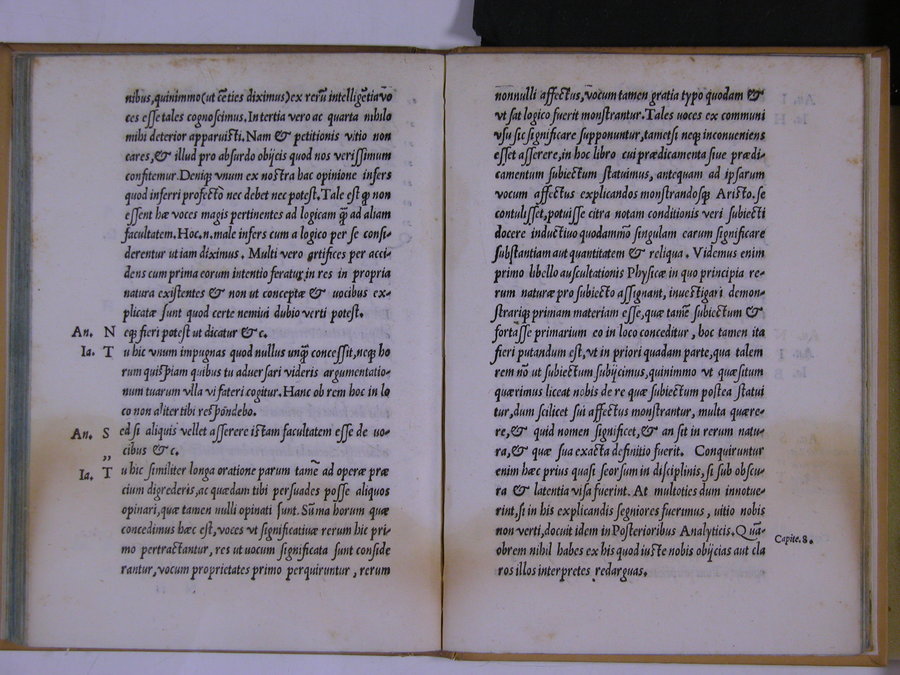 nibus,quinimmo(ut cẽties diximus)ex rerũ intelligẽtia vo
ces esse tales cognoscimus. In tertia vero ac quarta nihilo
mihi deterior apparuisti. Nam & petitionis vitio non
cares,& illud pro absurdo obijcis quod nos verissimum
confitemur. Deniqꝫ vnum ex nostra hac opinione infers
quod inferri profecto nec debet nec potest. Tale est ꝙ non
essent hæ voces magis pertinentes ad logicam ꝗ̃ ad aliam
facultatem. Hoc.n.male infers cum a logico per se consi-
derentur ut iam diximus. Multi vero artifices per acci-
dens cum prima eorum intentio feratur in res in propria
natura existentes & non ut conceptæ & uocibus ex-
plicatæ sunt quod certe nemini dubio verti potest.
An. N eqꝫ fieri potest ut dicatur & c.
Ia. T u hic vnum impugnas quod nullus unꝗ̃ concessit,neqꝫ ho
rum quispiam quibus tu aduersari videris argumentatio-
num tuarum vlla vi fateri cogitur. Hanc ob rem hoc in lo
co non aliter tibi respondebo.
An. S ed si aliquis vellet asserere istam facultatem esse de uo-
,, cibus & c.
Ia. T u hic similiter longa oratione parum tamẽ ad operæ præ
cium digrederis,ac quædam tibi persuades posse aliquos
opinari,quæ tamen nulli opinati sunt. Sũma horum quæ
concedimus hæc est,voces vt significatiuæ rerum hic pri-
mo pertractantur, res ut uocum significata sunt conside
rantur,vocum proprietates primo perquiruntur, rerum
nonnulli affectus,vocum tamen gratia typo quodam &
vt sat logico fuerit monstrantur. Tales uoces ex communi
vsu sic significare supponuntur,tametsi neqꝫ inconueniens
esset asserere,in hoc libro cui prædicamenta siue prædi-
camentum subiectum statuimus, antequam ad ipsarum
vocum affectus explicandos monstrandosqꝫ Aristo. se
contulisset,potuisse citra notam conditionis veri subiecti
docere inductiuo quodammõ singulam earum significare
substantiam aut quantitatem & reliqua. Videmus enim
primo libello auscultationis Physicæ in quo principia re-
rum naturæ pro subiecto assignant, inuestigari demon-
strariqꝫ primam materiam esse,quæ tamẽ subiectum &
fortasse primarium eo in loco conceditur, hoc tamen ita
fieri putandum est,vt in priori quadam parte,qua talem
rem nõ ut subiectum subijcimus,quinimmo vt quæsitum
quærimus liceat nobis de re quæ subiectum postea statui
tur,dum scilicet sui affectus monstrantur, multa quære-
re,& quid nomen significet,& an sit in rerum natu-
ra,& quæ sua exacta definitio fuerit. Conquiruntur
enim hæc prius quasi seorsum in disciplinis,si sub obscu-
ra & latentia visa fuerint. At multoties dum innotue-
rint,si in his explicandis segniores fuerimus, uitio nobis
non verti,docuit idem in Posterioribus Analyticis. Quã-
Capite.8.
obrem nihil habes ex his quod iuste nobis obijcias aut cla
ros illos interpretes redarguas.